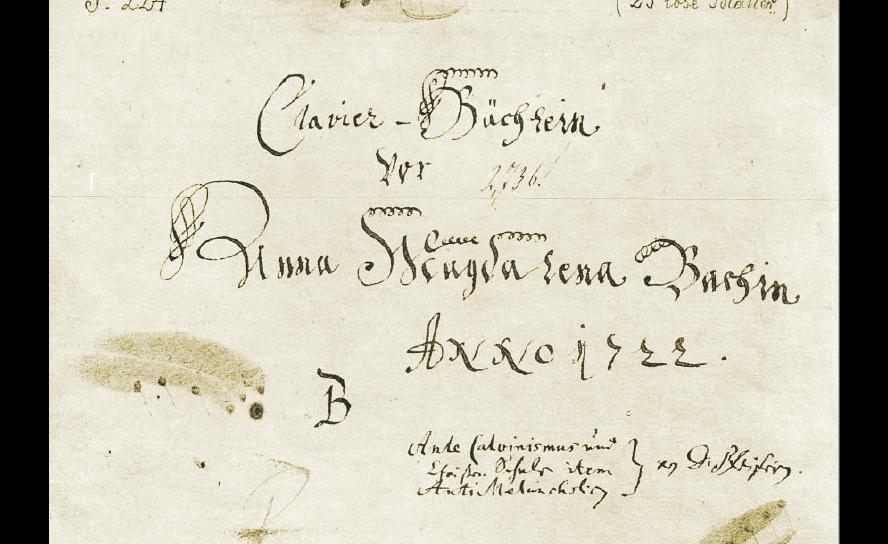 S. 224
(25 lose Blätter)
Clavier-Büchlein
vor
2736.
Anna Magdalena Bachin
ANNO 1722.
B
Ante Calvinismus und
Christen Schule item
Anti Melancholicus
von D. Pfeifern.